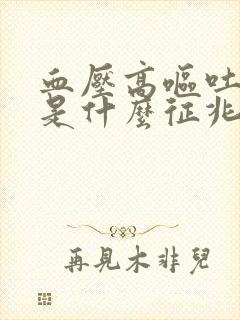 血壓高嘔吐
是什麼征兆
再見木非兒